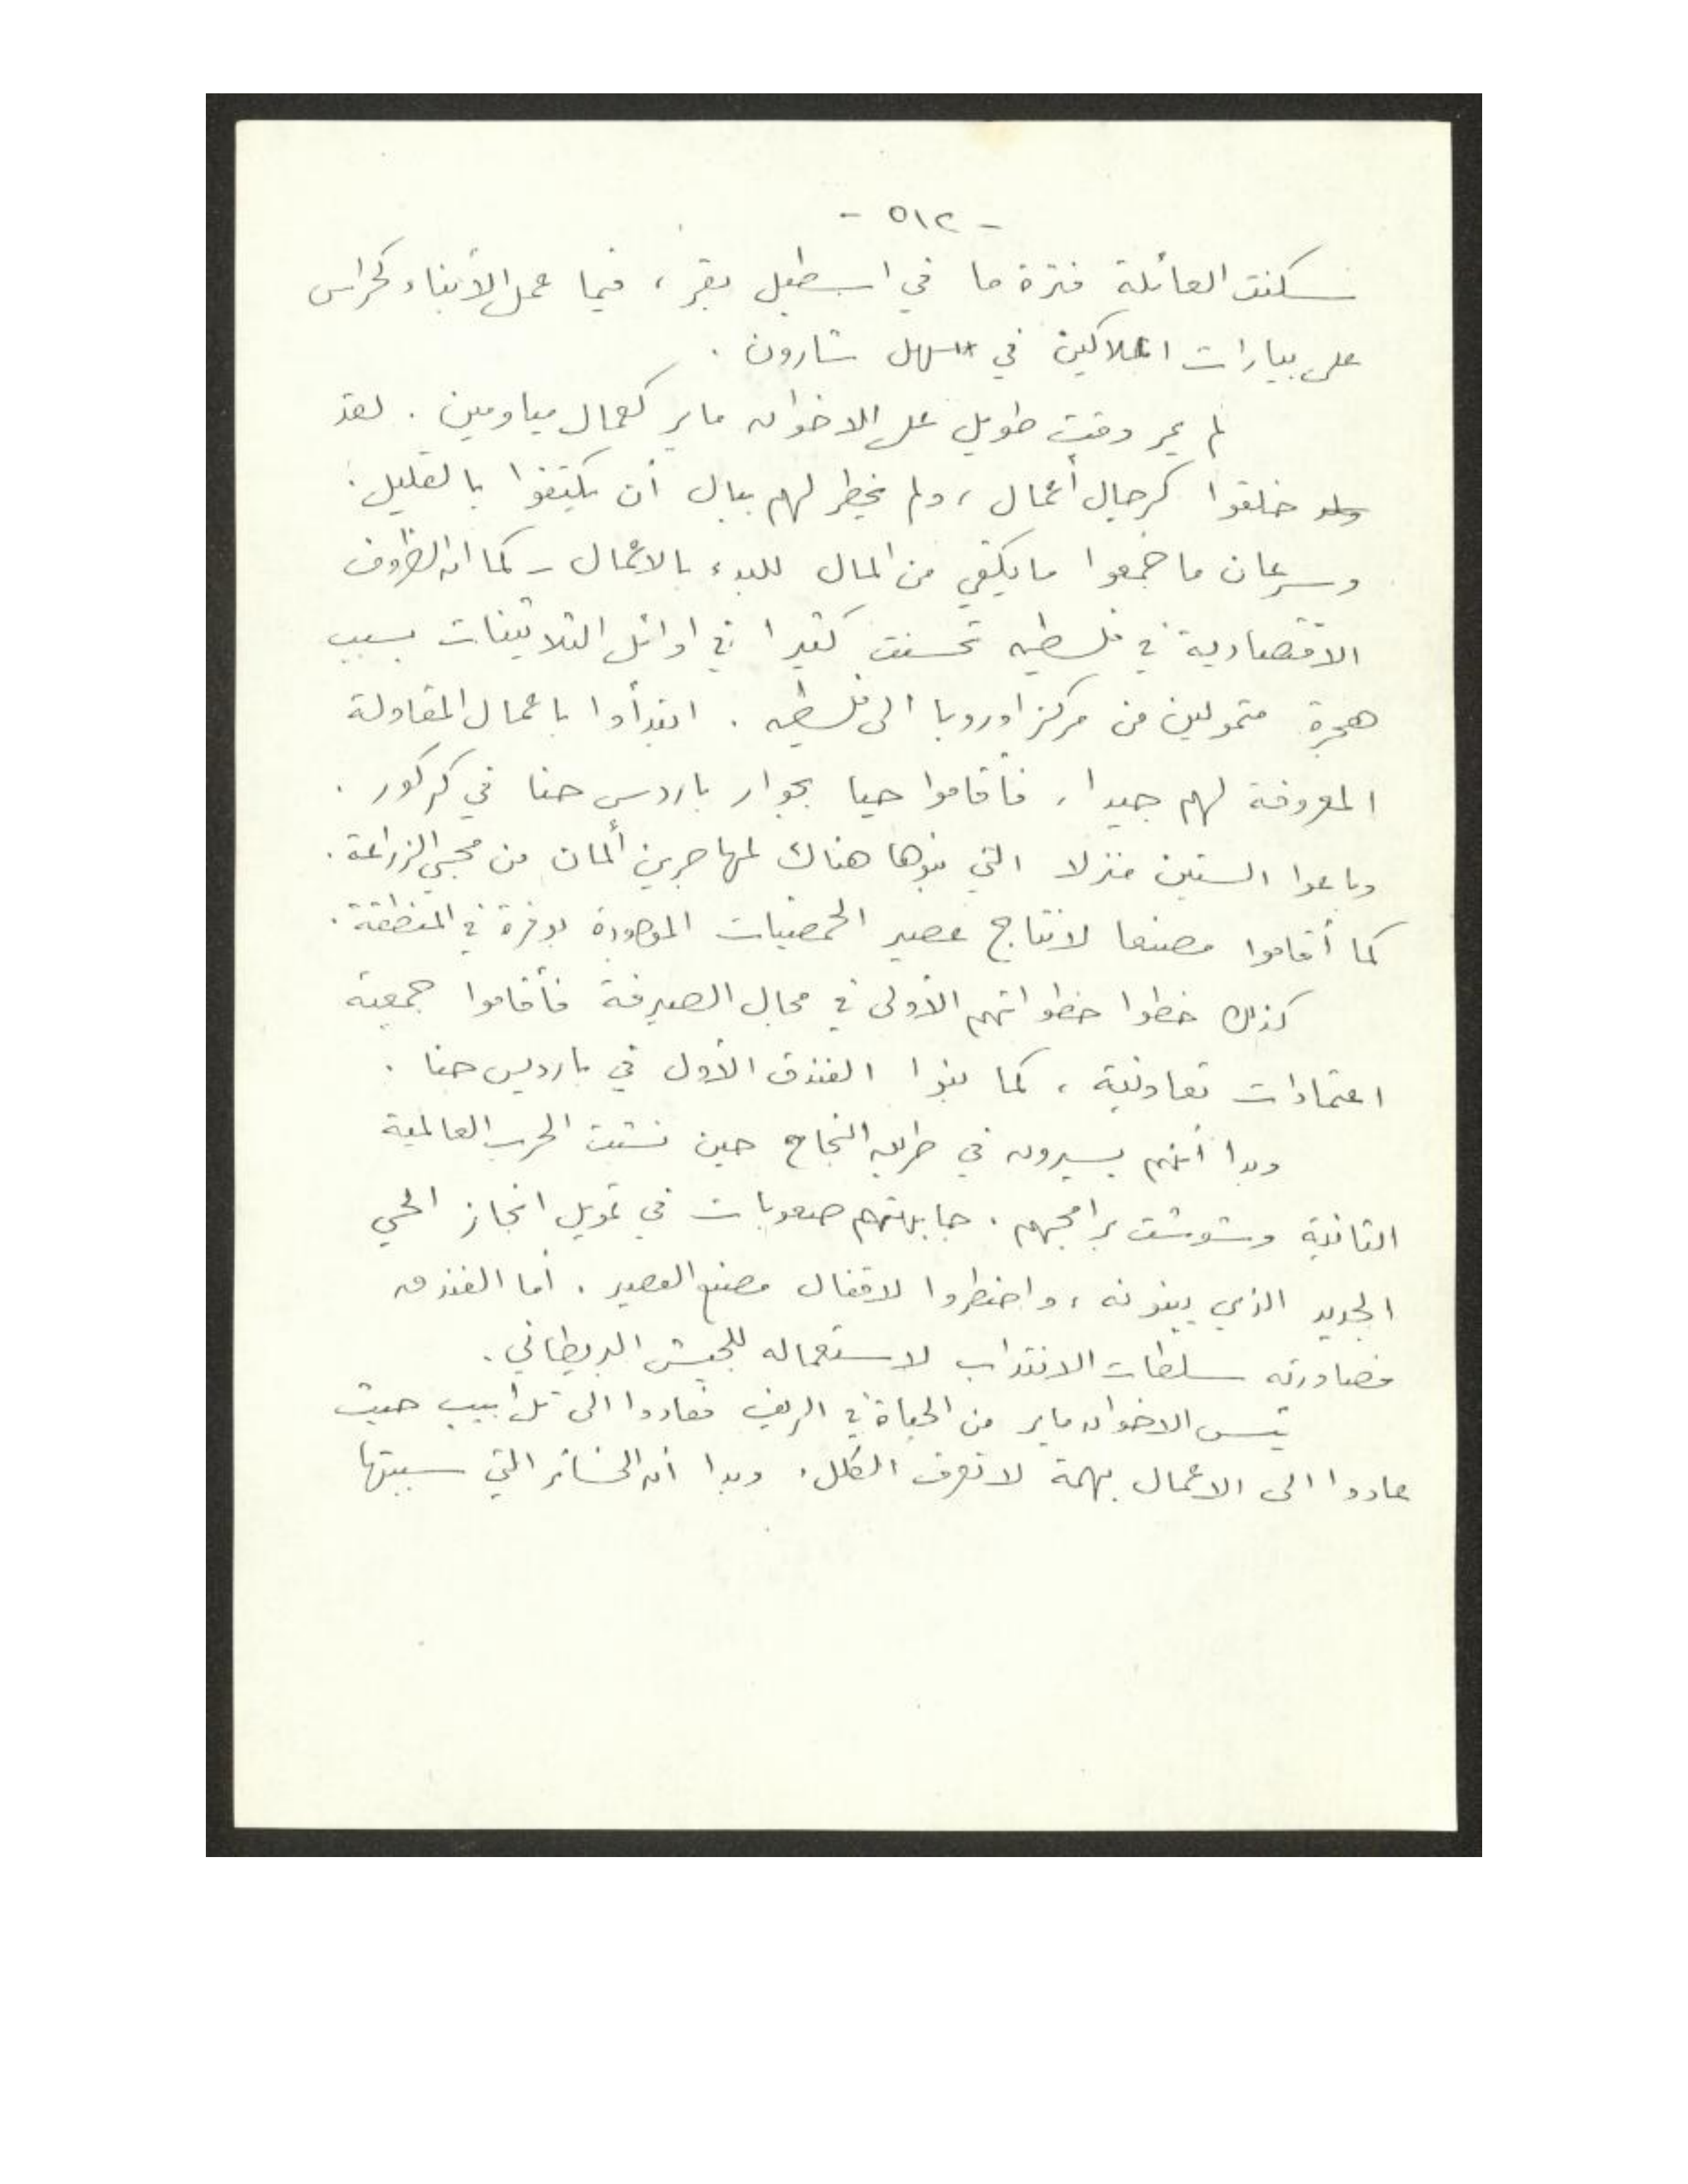 - ٥١٢ -
سكنت العائلة فترة ما في اسطبل بقر ، فيما عمل الأبناء كحراس
على بيارات الملاكين في سهل شارون .
لم يمر وقت طويل على الاخوان ماير كعمال مياومين . لقد
خلقوا كرجال أعمال ، ولم يخطر لهم ببال أن يكتفوا بالقليل .
وسرعان ما جمعوا ما يكفي من المال للبدء بالاعمال - كما ان الظروف
الاقتصادية في فلسطين تحسنت كثيرا في اوائل الثلاثينات بسبب
هجرة متمولين من مركز اوروبا الى فلسطين . ابتدأوا باعمال المقاولة
المعروفة لهم جيدا ، فأقاموا حيا بجوار باردس حنا في كركور .
وباعوا الستين منزلا التي بنوها هناك لمهاجرين ألمان من محبي الزراعة .
كما أقاموا مصنعا لانتاج عصير الحمضيات الموجودة بوفرة في المنطقة .
كذلك خطوا خطواتهم الأولى في مجال الصيرفة فأقاموا جمعية
اعتمادات تعاونية ، كما بنوا الفندق الأول في بارديس حنا .
وبدا أنهم يسيرون في طريق النجاح حين نشبت الحرب العالمية
الثانية وشوشت برامجهم . جابهتهم صعوبات في تمويل انجاز الحي
الجديد الذي يبنونه ، واضطروا لاقفال مصنع العصير . أما الفندق
فصادرته سلطات الانتداب لاستعماله للجيش البريطاني .
يئس الاخوان ماير من الحياة في الريف فعادوا الى تل أبيب حيث
عادوا الى الاعمال بهمة لا تعرف الكلل . وبدا ان الخسائر التي سببتها